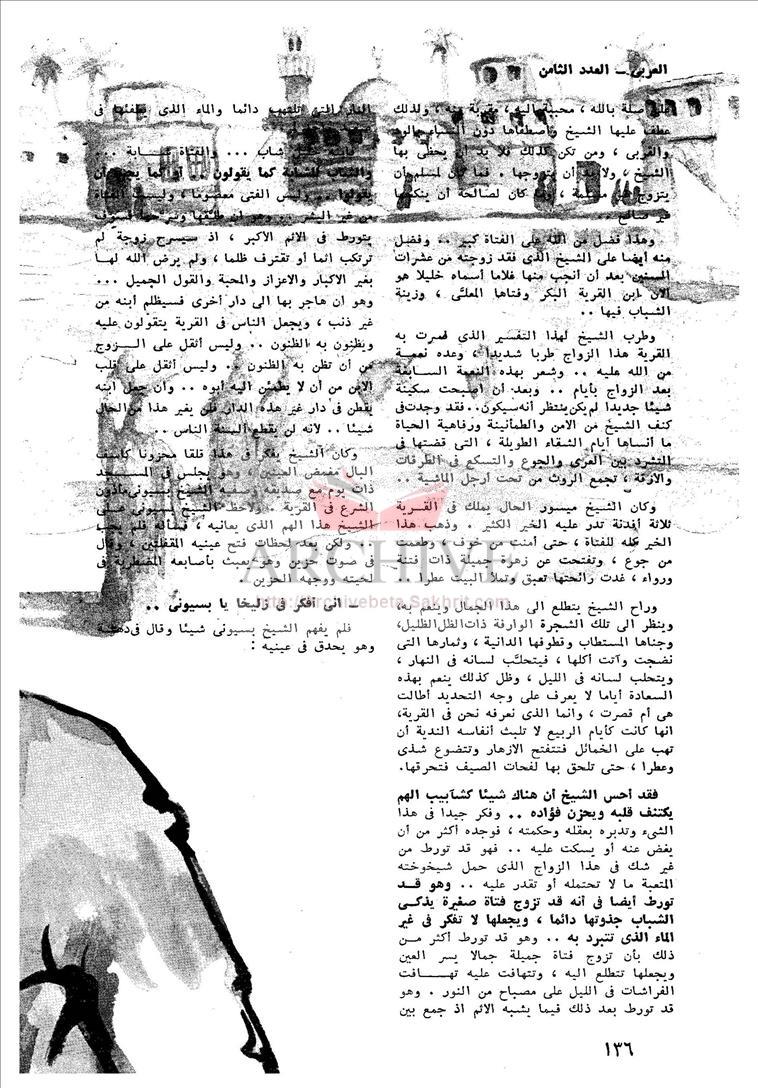 العربى – العدد الثامن
على صلة بالله ، محببة اليه ، مقربة منه ، ولذلك
عطف عليها الشيخ واصطفاها دون النساء
والقربى ، ومن تكن كذلك فلا بد أن يحظى بها
الشيخ ، ولا بد أن يتزوجها . فما كان لمسلم أن
يتزوج غير مسلمة ، وما كان لصالحة أن ينكحها
غير صالح ..
وهذا فضل من الله على الفتاة كبير .. وفضل
منه أيضا على الشيخ الذى فقد زوجته من عشرات
السنين بعد أن أنجب منها غلاما أسماه خليلا هو
الآن ابن القرية البكر وفتاها المعلّى ، وزينة
الشباب فيها ..
وطرب الشيخ لهذا التفسير الذى فسرت به
القرية هذا الزواج طربا شديدا ، وعده نعمة
من الله عليه .. وشعر بهذه النعمة السابغة
بعد الزواج بأيام .. وبعد أن أصبحت سكينة
شيئا جديدا لم يكن ينتظر أنه سيكون .. فقد وجدت فى
كنف الشيخ من الأمن والطمأنينة ورفاهية الحياة
ما أنساها أيام الشقاء الطويلة ، التى قضتها فى
التشرد بين العرى والجوع والتسكع فى الطرقات
والأزقة ، تجمع الروث من تحت أرجل الماشية ..
وكان الشيخ ميسور الحال يملك فى القرية
ثلاثة أفدنة تدر عليه الخير الكثير . وذهب هذا
الخير كله للفتاة ، حتى أمنت من خوف ، وطعمت
من جوع ، وتفتحت عن زهرة جميلة ذات فتنة
ورواء ، غدت رائحتها تعبق وتملأ البيت عطرا ..
وراح الشيخ يتطلع الى هذا الجمال وينعم به،
وينظر الى تلك الشجرة الوارفة ذات الظل الظليل،
وجناها المستطاب وقطوفها الدانية ، وثمارها التى
نضجت وآتت أكلها ، فيتحلّب لسانه فى النهار ،
ويتحلب لسانه فى الليل ، وظل كذلك ينعم بهذه
السعادة أياما لا يعرف على وجه التحديد أطالت
هى أم قصرت ، وانما الذى نعرفه نحن فى القرية،
انها كانت كأيام الربيع لا تلبث أنفاسه الندية أن
تهب على الخمائل فتتفتح الازهار وتتضوع شذى
وعطرا ، حتى تلحق بها لفحات الصيف فتحرقها.
فقد أحس الشيخ أن هناك شيئا كشآبيب الهم
يكتنف قلبه ويحزن فؤاده .. وفكر جيدا فى هذا
الشىء وتدبره بعقله وحكمته ، فوجده أكثر من أن
يغض عنه أو يسكت عليه .. فهو قد تورط من
غير شك فى هذا الزواج الذى حمل شيخوخته
المتعبة ما لا تحتمله أو تقدر عليه .. وهو قد
تورط أيضا فى أنه قد تزوج فتاة صغيرة يذكى
الشباب جذوتها دائما ، ويجعلها لا تفكر فى غير
الماء الذى تتبرد به .. وهو قد تورط أكثر من
ذلك بأن تزوج فتاة جميلة جمالا يسر العين
ويجعلها تتطلع اليه ، وتتهافت عليه تهافت
الفراشات فى الليل على مصباح من النور . وهو
قد تورط بعد ذلك فيما يشبه الاثم اذ جمع بين
النار التى تلتهب دائما والماء الذى يطفئها فى
شاب ... والفتاة شابة ...
والشباب للشابة كما يقولون .. أو كما يجب أن
يقولوا .. وليس الفتى معصوما ، وليست الفتاة
من غير البشر .. وهو ان طلقها وسرحها فسوف
يتورط فى الاثم الاكبر ، اذ سيسرح زوجة لم
ترتكب اثما أو تقترف ظلما ، ولم يرض الله لها
بغير الاكبار والاعزاز والمحبة والقول الجميل ...
وهو ان هاجر بها الى دار أخرى فسيظلم أبنه من
غير ذنب ، ويجعل الناس فى القرية يتقولون عليه
ويظنون به الظنون .. وليس أثقل على الزوج
من أن تظن به الظنون .. وليس أثقل على قلب
الابن من أن لا يطمئن اليه أبوه .. وان جعل ابنه
يقطن فى دار غير هذه الدار فلن يغير هذا من الحال
شيئا .. لأنه لن يقطع ألسنة الناس ..
وكان الشيخ يفكر فى هذا قلقا محزونا كاسف
البال مغمض العينين ، وهو يجلس فى المسجد
ذات يوم مع صديقه وصفيه الشيخ بسيونى مأذون
الشرع فى القرية . ولاحظ الشيخ بسيونى على
الشيخ هذا الهم الذى يعانيه ، فسأله فلم يجب
ولكن بعد لحظات فتح عينيه المقفلتين ، وقال
فى صوت حزين وهو يعبث بأصابعه المضطربة فى
لحيته ووجهه الحزين
– انى أفكر فى زليخا يا بسيونى ..
فلم يفهم الشيخ بسيونى شيئا وقال فى دهشة
وهو يحدق فى عينيه :
ARCHIVE
http://Archivebeta.Sakhrit.com
١٣٦